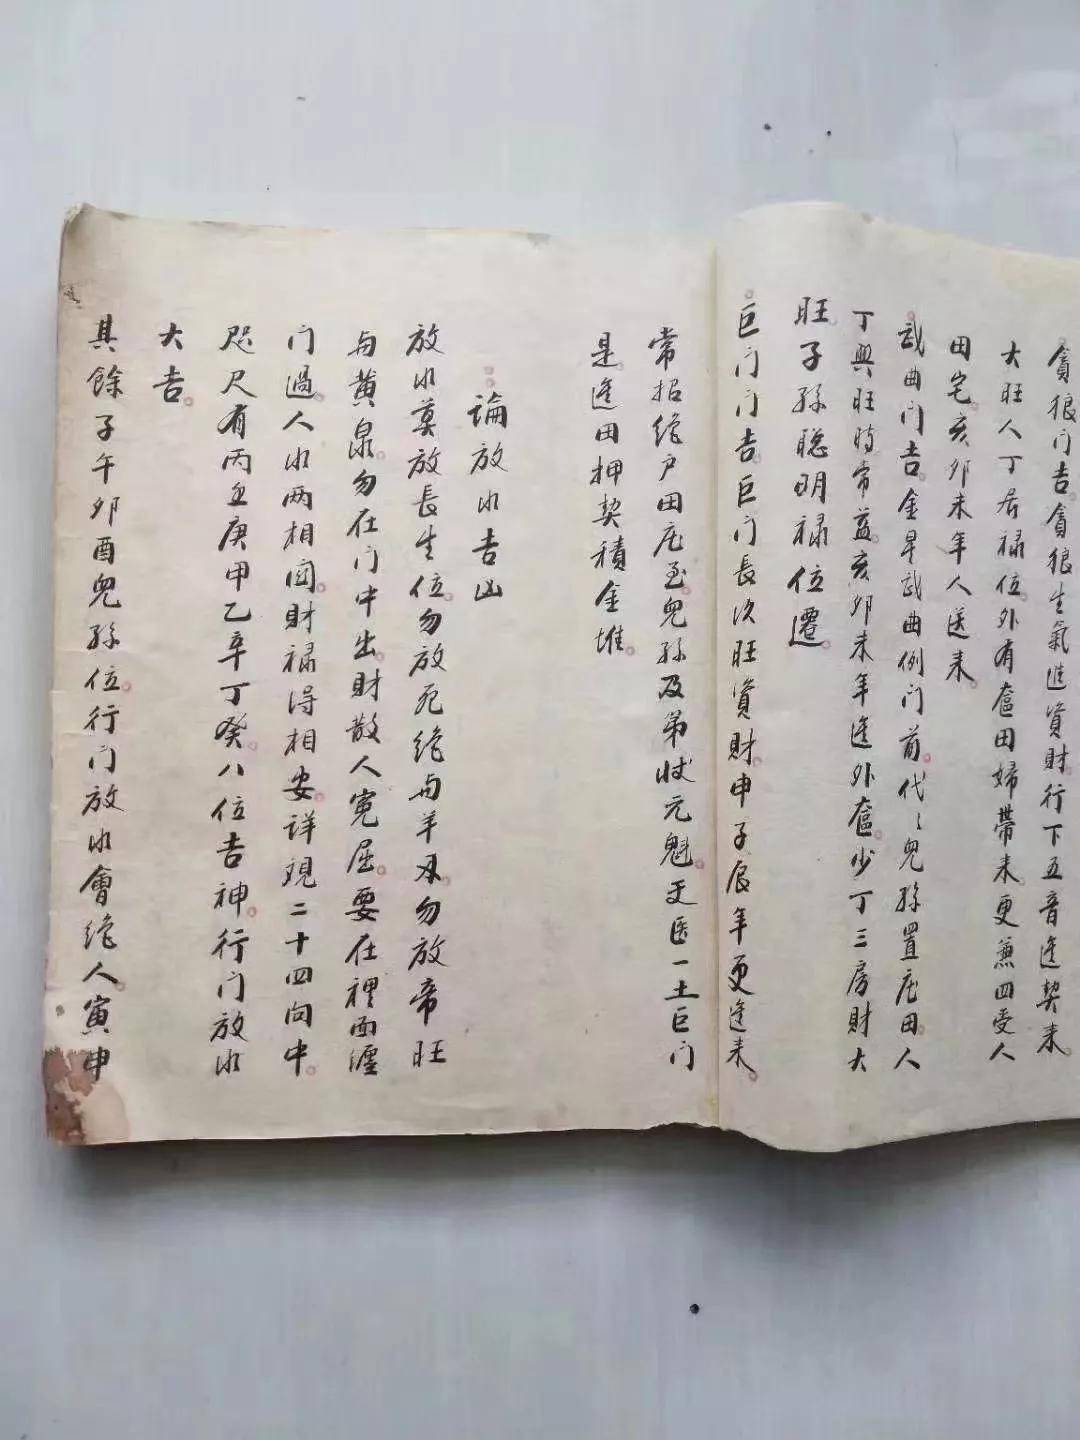 貪狼门吉。貪狼生氣進資財。行下五音進契來。
大旺人丁居禄位。外有奩田婦帶来。更兼四受人
田宅。亥卯未年人送来。
武曲门吉。金星武曲例门前。代〻兒孫置庄田。人
丁興旺時常益。亥卯未年進外奩。少丁三房財大
旺。子孫聪明禄位遷。
巨门门吉。巨门長次旺資財。申子辰年更進来。
常招绝户田庄至。兒孫及第状元魁。天医一土巨门
是。進田押契積金堆。
論放水吉凶
放水莫放長生位。勿放死绝与羊刃。勿放帝旺
与黄泉。勿在门中出。財散人寃屈。要在裡面纏
门過。人水两相囬。財禄得相安。詳現二十四向中。
咫尺有丙壬庚甲乙辛丁癸。八位吉神。行门放水
大吉。
其餘子午卯酉兒孫位。行门放水會绝人。寅申